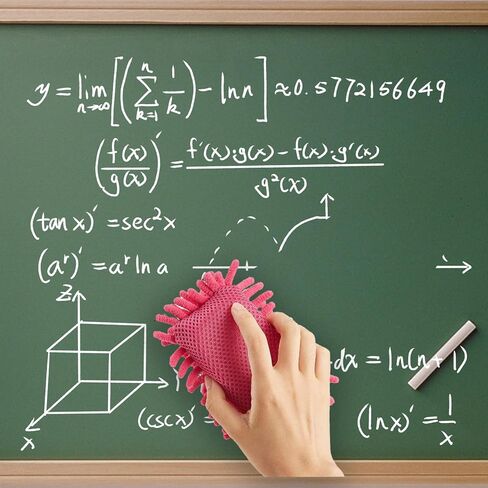 y = lim n→∞ [(∑ n k=1 1/k) - ln n] ≈ 0.5772156649
(f(x)/g(x))′ = f′(x)·g(x) - f(x)·g′(x) / g²(x)
(tan x)′ = sec²x
(aʳ)′ = aʳ ln a
z
dx = ln(n+1)
x
(csc x)′ =
(ln x)′ = 1/x